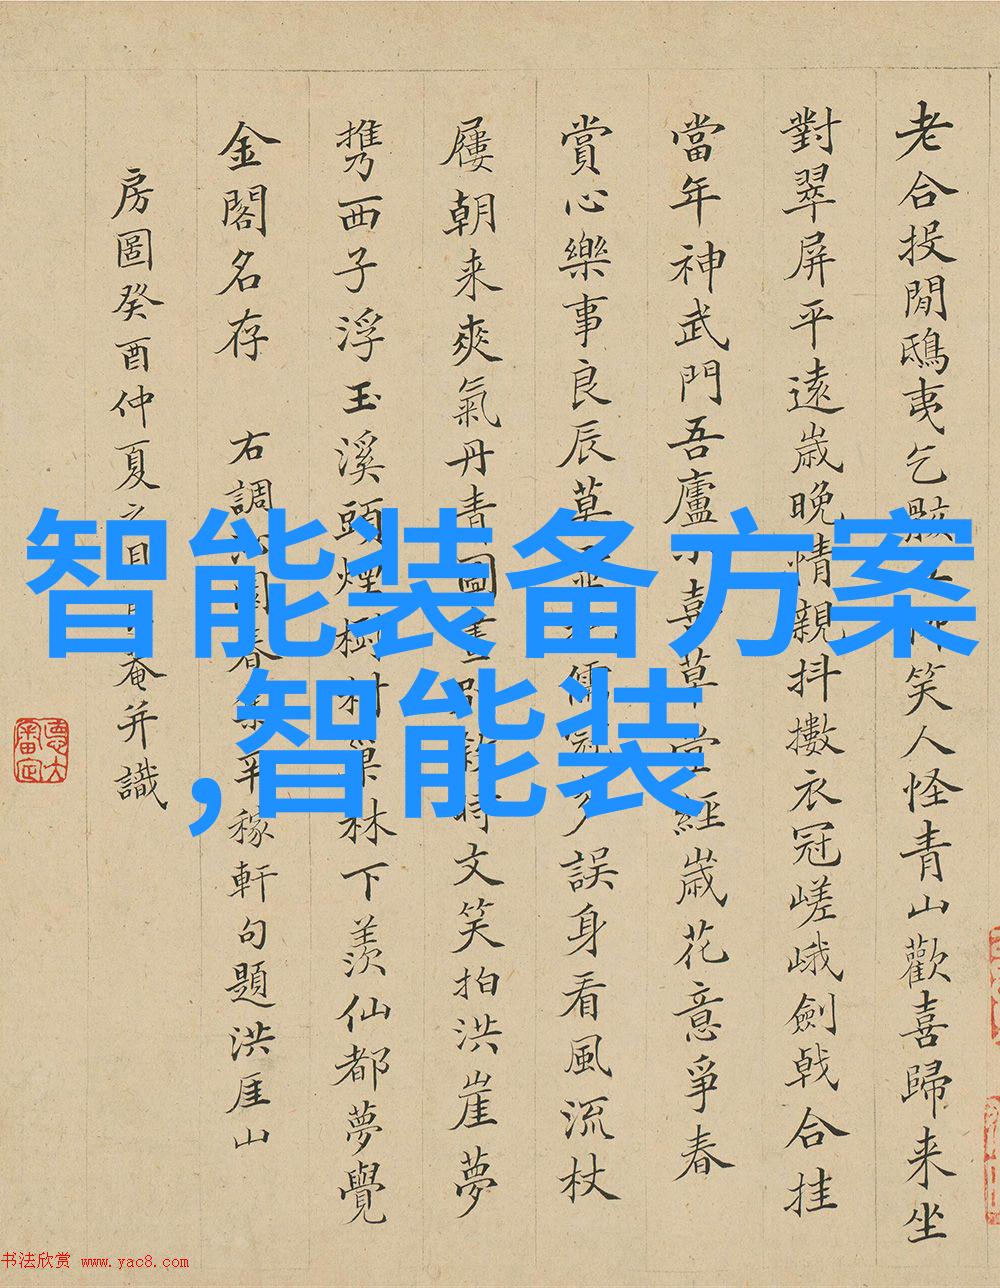 老合投閒鴟夷乞骸笑人怪青山歡喜歸来坐
對翠屏平遠歲晚情親抖擻衣冠嵯峨劍戟合挂
當年神武門吾廬小喜草堂經歲花意爭春
賞心樂事良辰莫儒冠多誤身看風流杖
屨朝来爽氣丹青圖畫文笑拍洪崖夢
携西子浮玉溪頭煙樹村林下羨仙都夢覺
金閣名存 右調沁園春集辛稼軒句題洪厓山
房圖癸酉仲夏之菴并識
智能装备方案
,智能装
书法欣赏 www.yac8.com